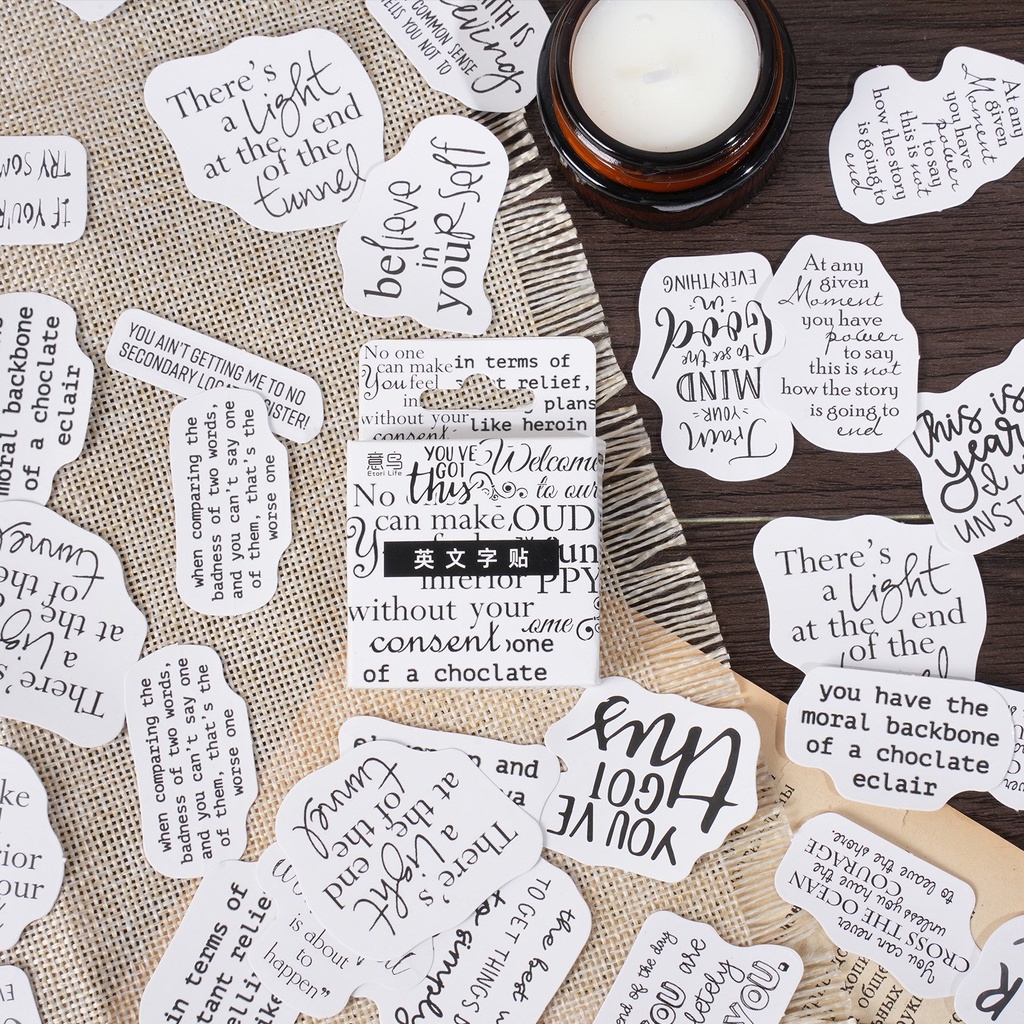 TH IS
COMMON SENSE
ELLS YOU NOT TO
There's
a Light
at the end
of the
tunnel
believe
in
yourself
At any
given
Moment
you have
power
to say
this is not
how the story
is going to
end
TRY SOM
IF YOU'R
Train
YOUR
MIND
to see the
Good
in
EVERYTHING
At any
given
Moment
you have
power
to say
this is not
how the story
is going to
end
moral backbone
of a choclate
eclair
YOU AIN'T GETTING ME TO NO
SECONDARY LOCA
ISTER!
when comparing the
badness of two words,
and you can't say one
of them, that's the
worse one
No one
can make
You feel
in
without your
consent
in terms of
relief,
plans
like heroin
意鸟
Etori Life
YOU'VE
GOT
this
Welcome
to our
No
can make
OUD
英文字贴
inferior
PPY
without your
ome
consent
one
of a choclate
this is
year
UNST
There's
a Light
at the end
of the
tunnel
There's
a Light
at the end
of the
you have the
moral backbone
of a choclate
eclair
when comparing the
badness of two words,
and you can't say one
of them, that's the
worse one
and
There's
a Light
at the end
of the
tunnel
YOU'VE
GOT
this
You can never
CROSS THE OCEAN
unless you have the
COURAGE
to leave the shore.
ke
rior
our
in terms of
tant relie
is about
to
happen"
TO GET THING'S
the best
end of the day
YOU are
letely
YOU.